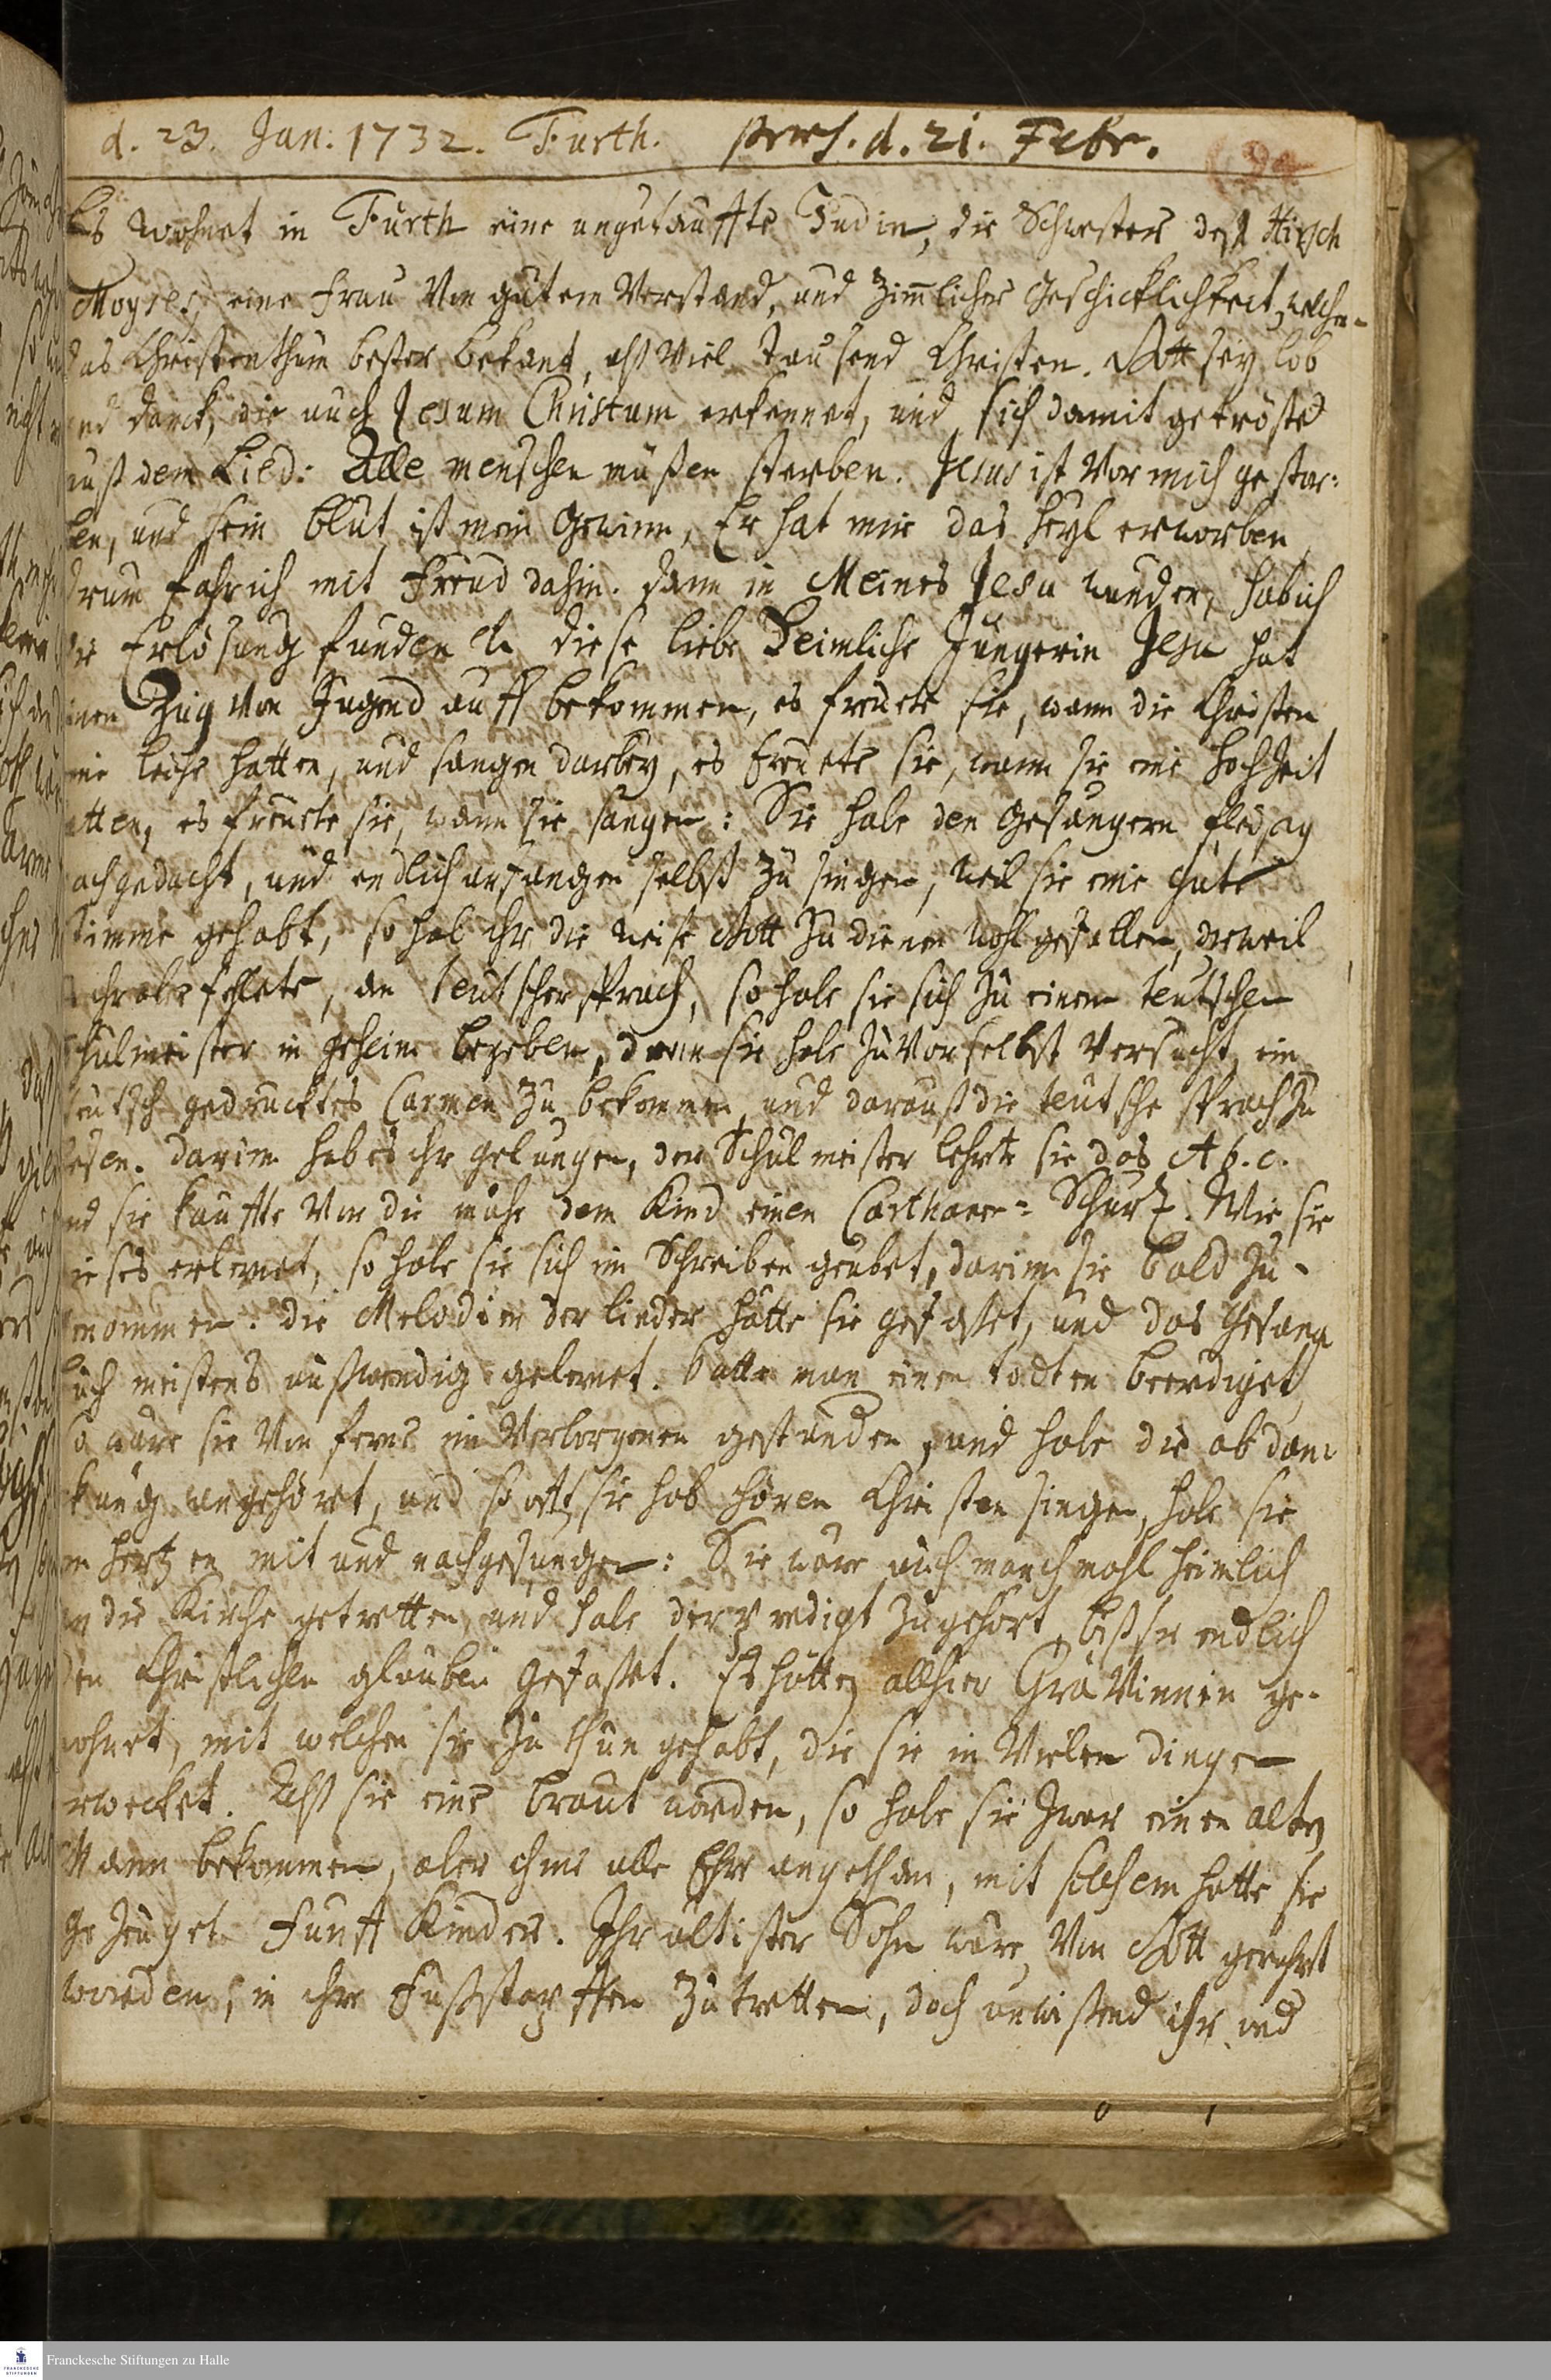 d. 23. Jan: 1732. Furth. præs. d. 21. Febr.
94
Es wohnet in Fürth eine ungetauffte Jüdin, die Schwester deß Hirsch
Moyses, eine Frau von gutem Verstand, und zimmlicher Geschicklichkeit, welcher
das Christenthum besser bekant, alß viel tausend Christen. Gott sey lob
und danck, die auch Jesum Christum erkennet, und sich damit getröstet
auß dem Lied: Alle menschen müßen sterben. Jesus ist vor mich gestor:
ben, und sein blut ist mein Gewinn, Er hat mir das heyl erworben
drum fahr ich mit Freud dahin. dann in Meines Jesu wunden, hab ich
die Erlösung funden diese liebe heimliche Jüngerin Jesu hat
einen Zug von Jugend auff bekommen, es freuete sie, wann die Christen
eine leiche hatten, und sangen darbey, es freuete sie, wann sie eine hochzeit
hatten, es freuete sie, wann sie sangen: Sie habe den Gesängern fleißig
nachgedacht, und endlich anfangen selbst zu singen, weil sie eine gute
Stimme gehabt, so hab ihr die weise Gott zu dienen wohlgefallen, dieweil
ihr aber fehlete, an teutscher sprach, so habe sie sich zu einem teutschen
Schulmeister in geheim begeben, dann sie habe zuvor selbst versucht, ein
teutsch gedrucktes Carmen zu bekommen, und darauß die teutsche sprach zu
lesen. darinn hab es ihr gelungen, der Schulmeister lehrte sie das A b. c.
und sie kauffte vor die mühe dem Kind einen Schurtz. Wie sie
dieses erlernet, so habe sie sich im Schreiben geübet, darinn sie bald zu-
genommen: die Melodien der lieder hatte sie gefaßet, und das Gesang
buch meistens außwendig gelernet. hatte man einen todten beerdiget,
so wäre sie von ferne im Verborgenen gestanden, und habe die abdan
kung angehöret, und so offt sie hab hören Christen singen, habe sie
im hertzen mit und nachgesungen: Sie wäre auch manchmahl heimlich
in die Kirche getretten, und habe der predigt zugehört, biß sie endlich
den Christlichen glauben gefaßet. Es hätten allhier Grävinnen ge-
wohnet, mit welchen sie zu thun gehabt, die sie in vielen dingen
erwecket. Alß sie eine braut worden, so habe sie zwar einen alten
Mann bekommen, aber ihme alle Ehr angethan, mit solchem hatte sie
gezeuget Funff Kinder. Ihr ältister Sohn wäre von Gott gerührt
worden, in ihre Fußstapffen zu tretten, doch unwißend ihr und
Franckesche Stiftungen zu Halle